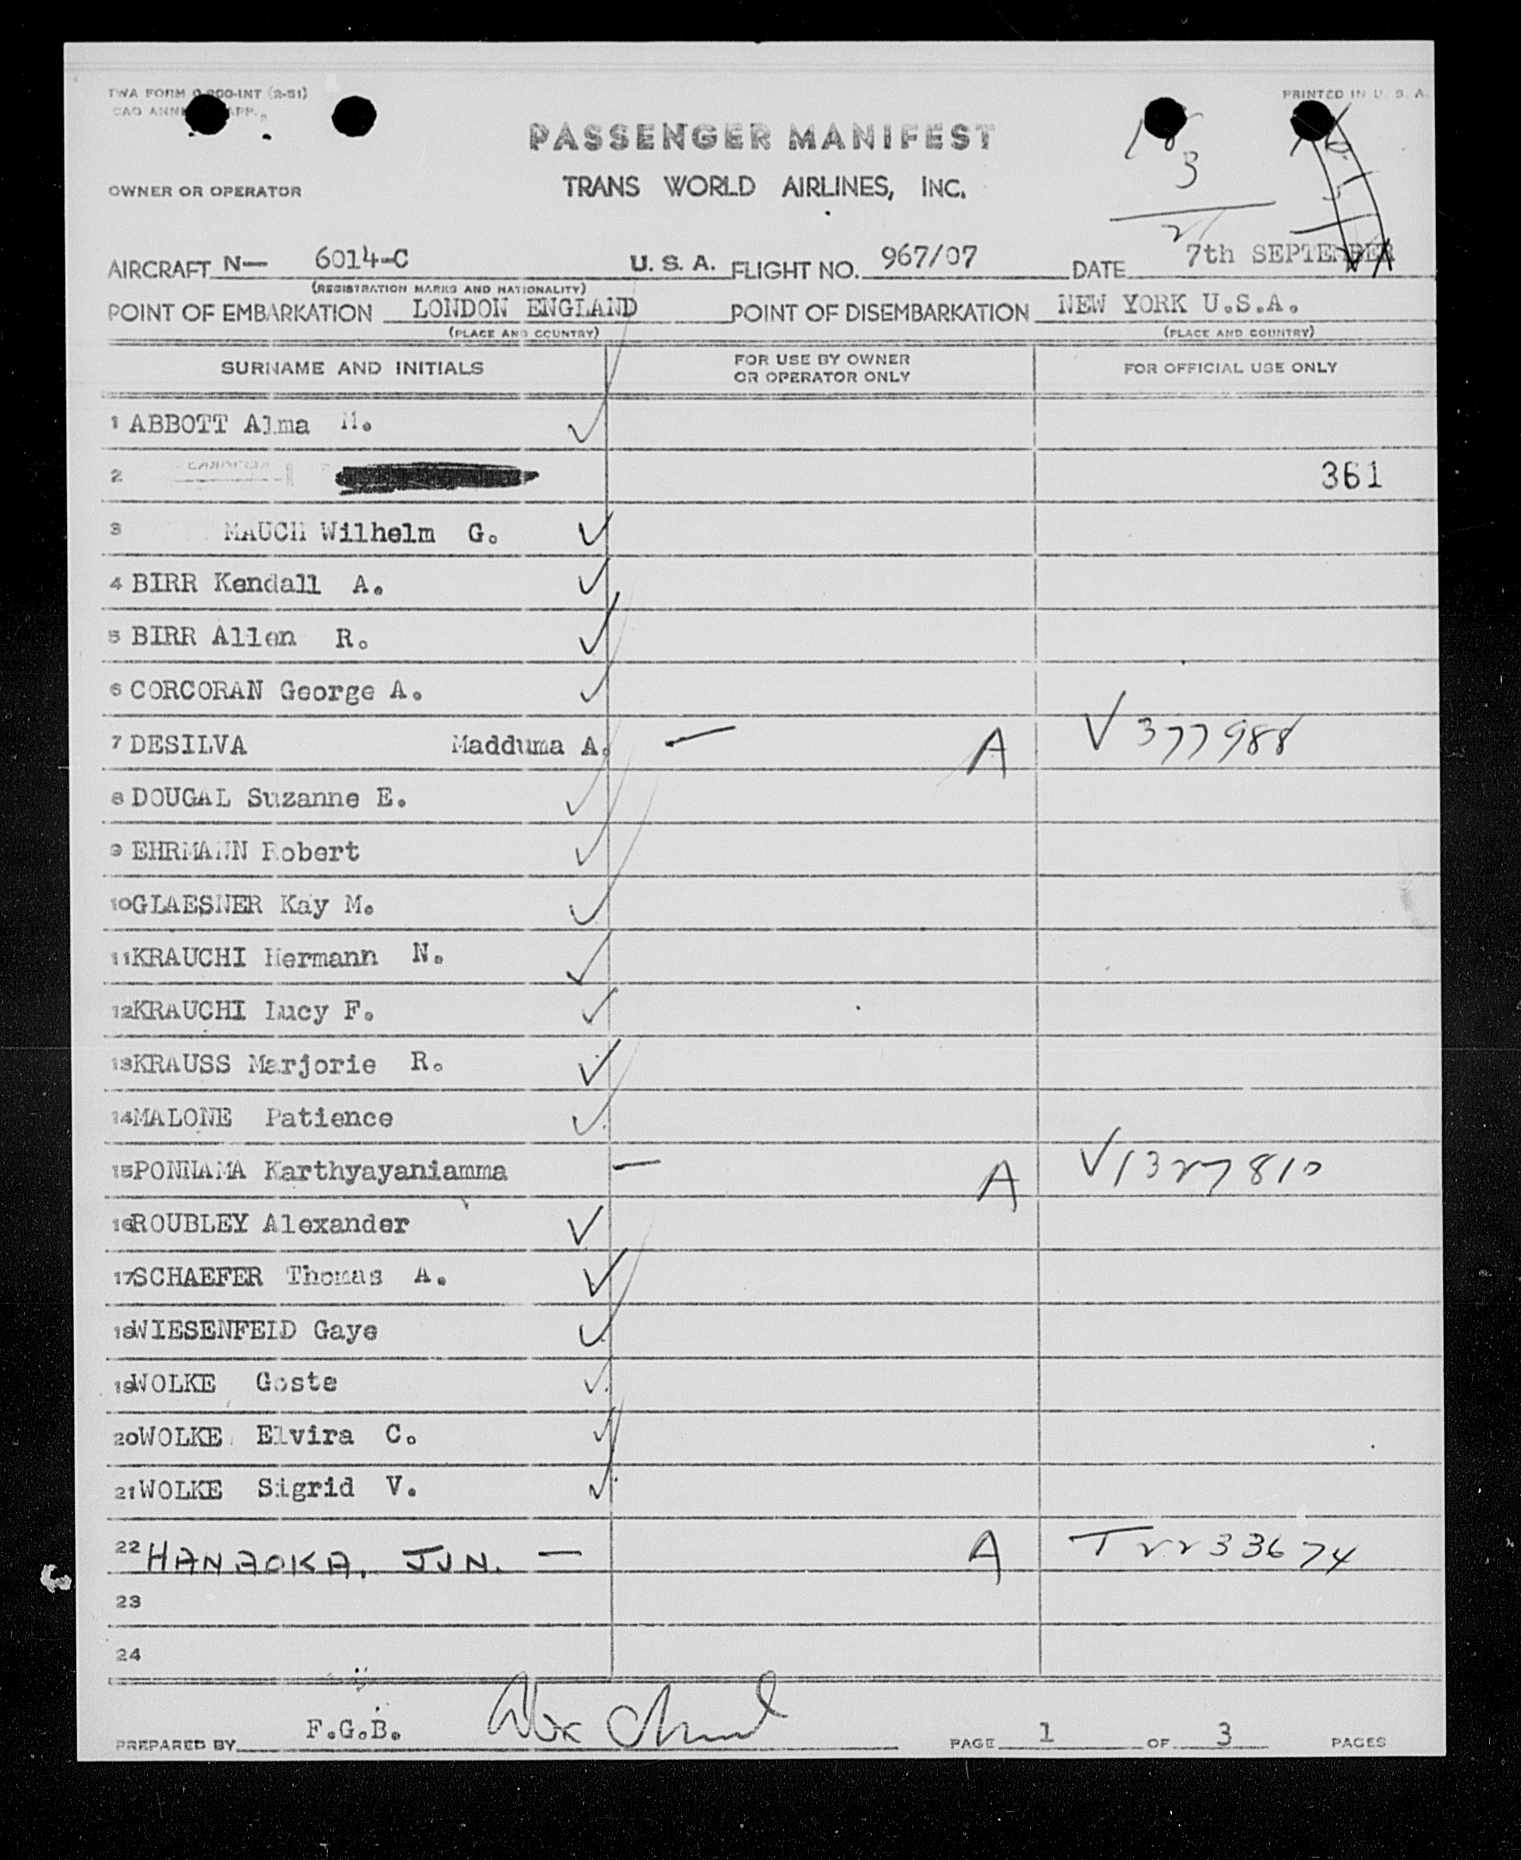 TWA FORM O-200-INT (2-51)
PRINTED IN U. S. A.
PASSENGER MANIFEST
18
3
21
OWNER OR OPERATOR TRANS WORLD AIRLINES, INC.
AIRCRAFT N— 6014-C U. S. A. FLIGHT NO. 967/07 DATE 7th SEPTEMBER
(REGISTRATION MARKS AND NATIONALITY)
POINT OF EMBARKATION LONDON ENGLAND POINT OF DISEMBARKATION NEW YORK U.S.A.
(PLACE AND COUNTRY) (PLACE AND COUNTRY)
SURNAME AND INITIALS FOR USE BY OWNER OR OPERATOR ONLY FOR OFFICIAL USE ONLY
1 ABBOTT Alma M. ✓
2 361
3 MAUCH Wilhelm G. ✓
4 BIRR Kendall A. ✓
5 BIRR Allen R. ✓
6 CORCORAN George A. ✓
7 DESILVA Madduma A. — A V377988
8 DOUGAL Suzanne E. ✓
9 EHRMANN Robert ✓
10 GLAESNER Kay M. ✓
11 KRAUCHI Hermann N. ✓
12 KRAUCHI Lucy F. ✓
13 KRAUSS Marjorie R. ✓
14 MALONE Patience ✓
15 PONNAMA Karthyayaniamma — A V1327810
16 ROUBLEY Alexander ✓
17 SCHAEFER Thomas A. ✓
18 WIESENFELD Gaye ✓
19 WOLKE Goste ✓
20 WOLKE Elvira C. ✓
21 WOLKE Sigrid V. ✓
22 HANAOKA, JUN. — A T2233674
23
24
PREPARED BY F.G.B. PAGE 1 OF 3 PAGES